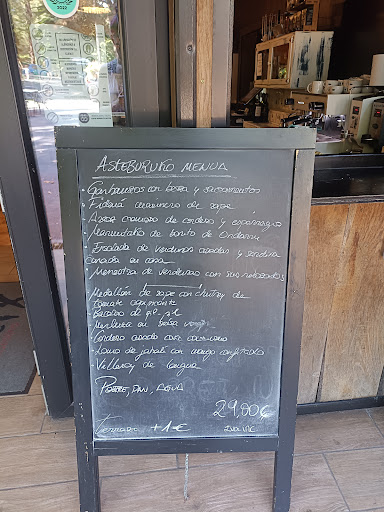 ASTEBURUKO MENUA
- Garbanzos con berza y sacramentos
- Fideuá marinero de rape
- Arroz cremoso de cordero y espárragos
- Marmitako de bonito de Ondarroa
- Ensalada de verduras asadas y sardina
curada en casa
- Menestra de verduras con sus rebozados
Medallón de rape con chutney de
tomate
Bacalao al pil pil
Merluza en salsa verde
Cordero asado
Lomo de jabalí con mango confitado
de lengua
POSTRE, PAN, AGUA
29,00€
Terraza +1€